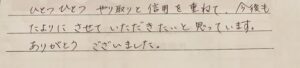 ひとつひとつ やり取りと信用を重ねて、今後も
たよりに させていただきたいと思っています。
ありがとう ございました。